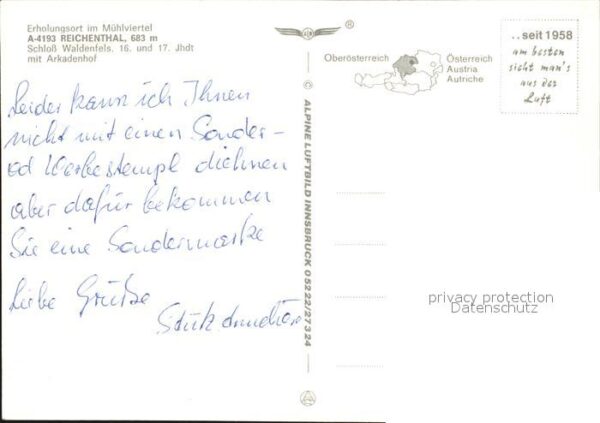 Erholungsort im Mühlviertel
A-4193 REICHENTHAL, 683 m
Schloß Waldenfels, 16. und 17. Jhdt
mit Arkadenhof
Leider kann ich Ihnen
nicht mit einen Sonder-
od Werbestempl diehnen
aber dafür bekommen
Sie eine Sondermarke
Liebe Grüße
®
© ALPINE LUFTBILD INNSBRUCK 0 52 22/27 3 24
Oberösterreich
Österreich
Austria
Autriche
..seit 1958
am besten
sieht man's
aus der
Luft
privacy protection
Datenschutz